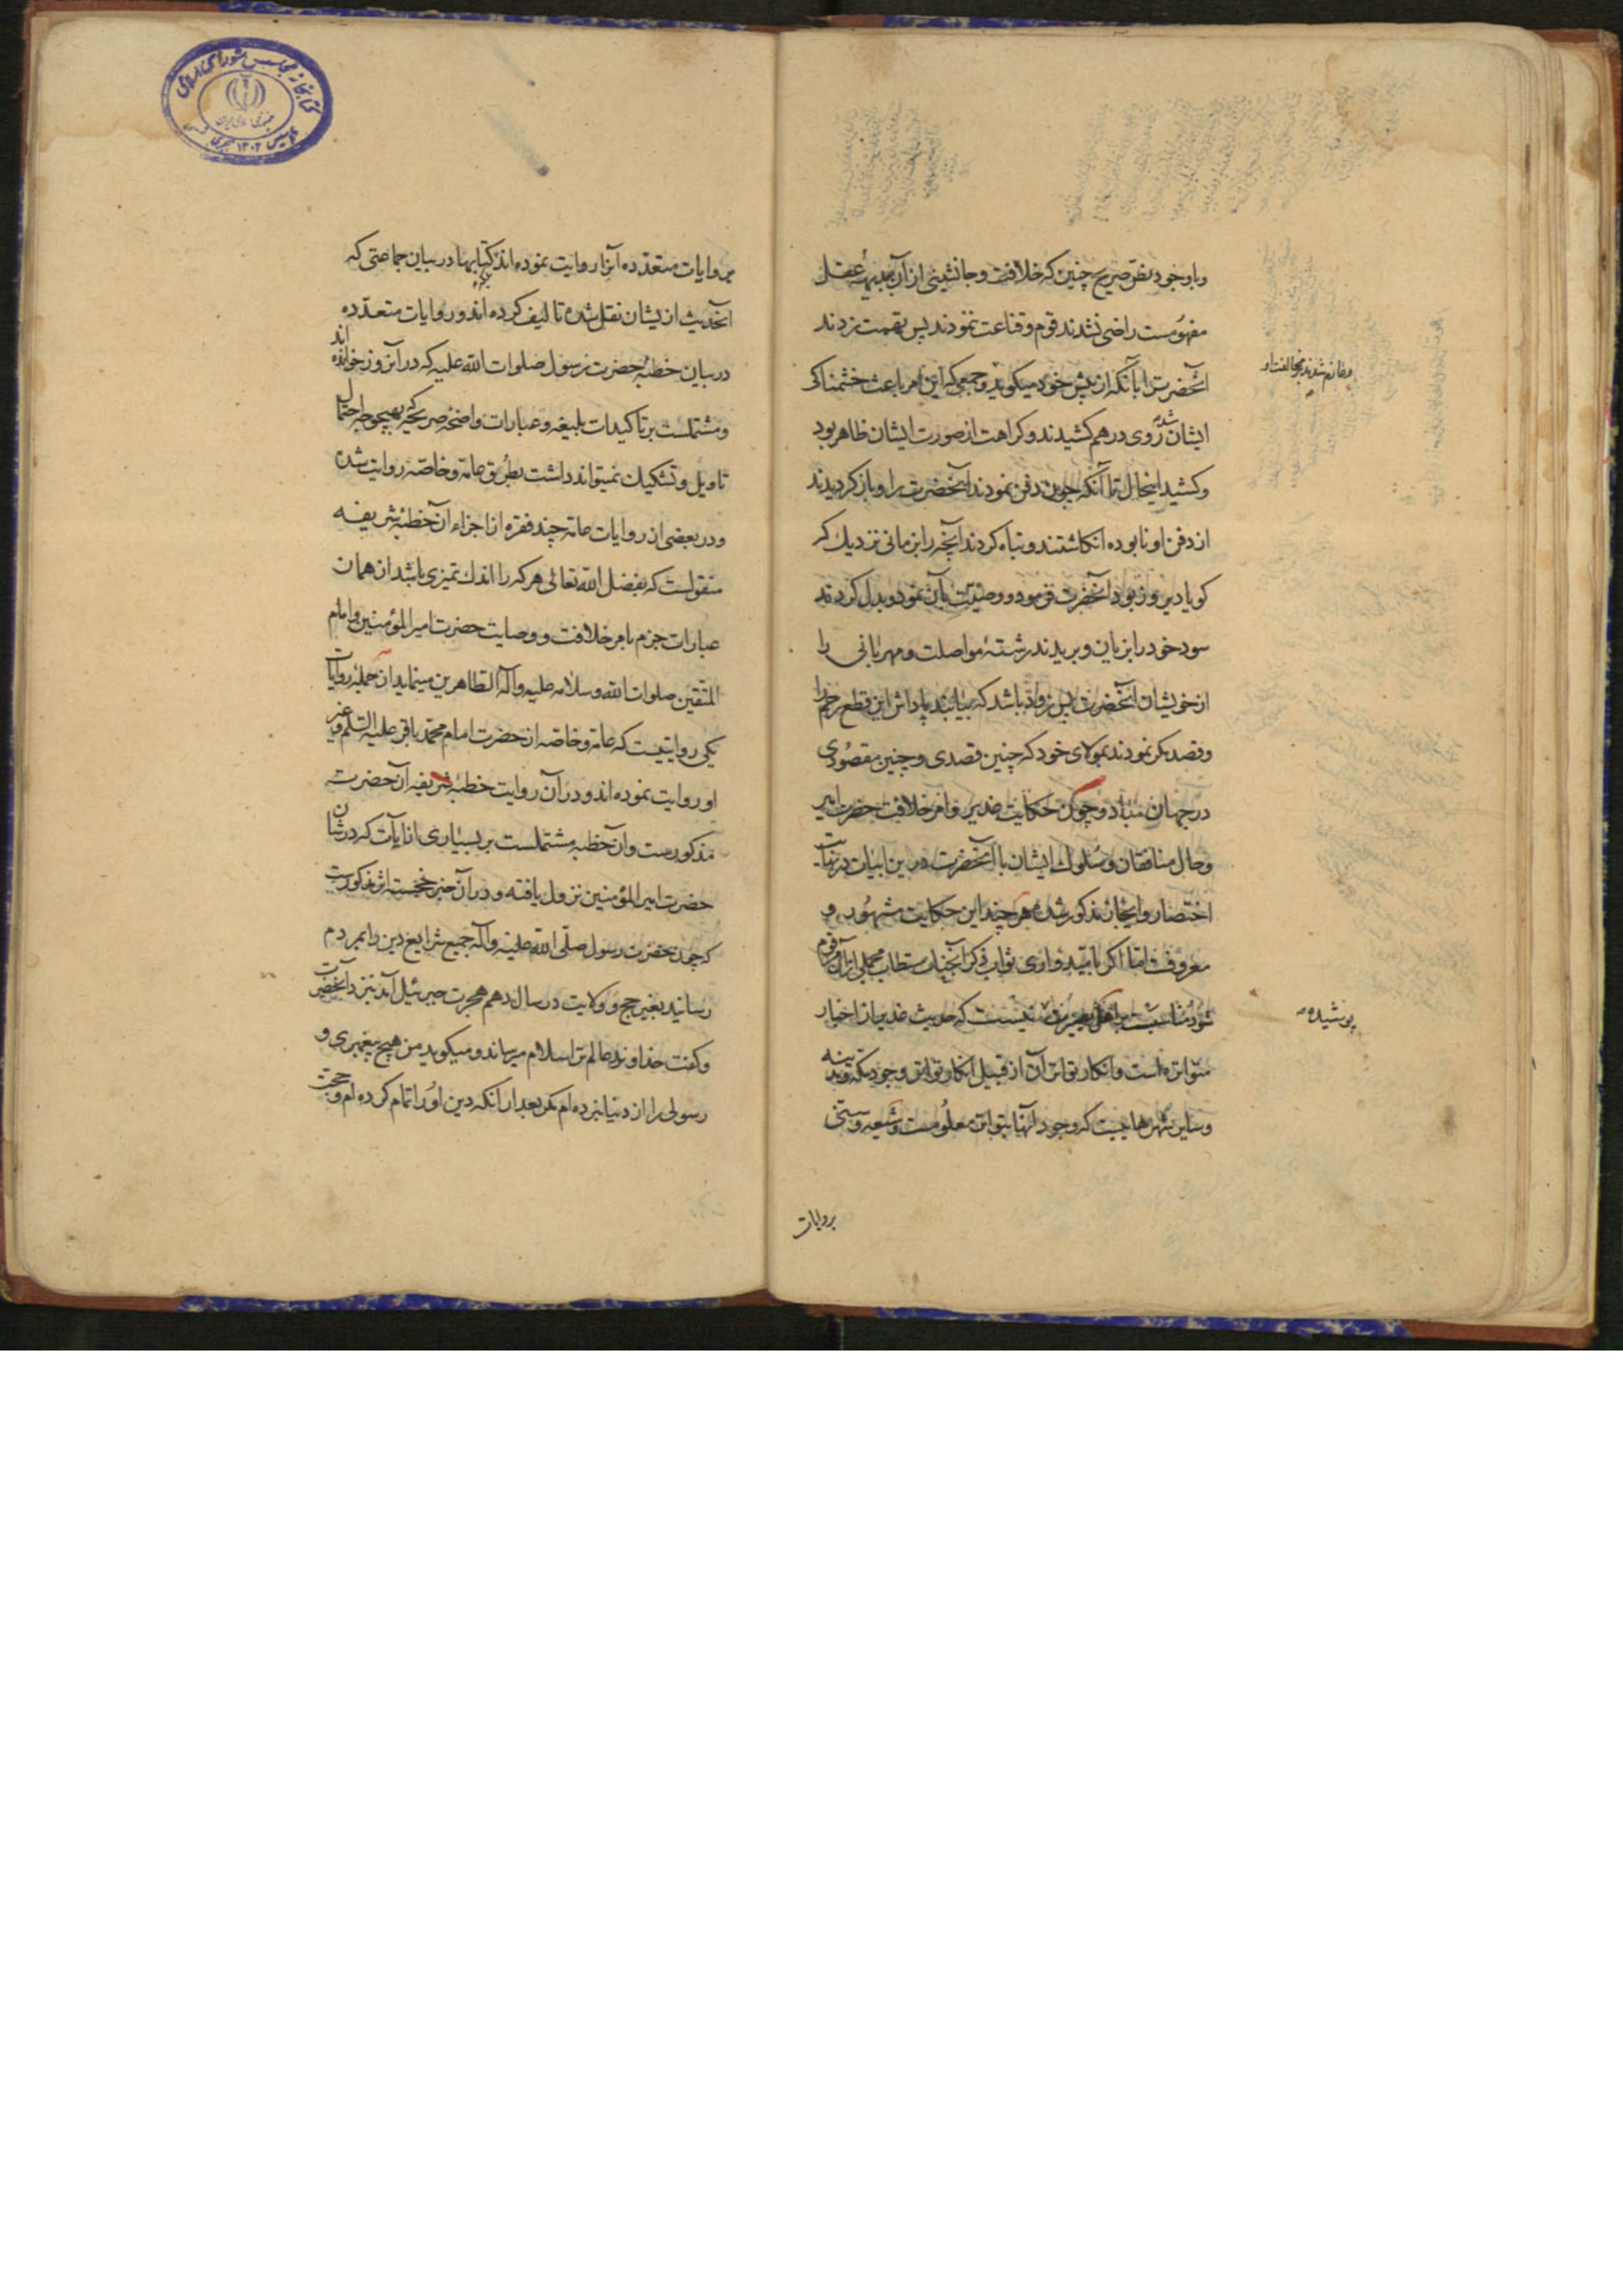 وباوجود نص صریح چنین که خلافت و جانشینی از آن ببدیهۀ عقل
مفهومست راضی نشدند قوم و قناعت ننمودند پس تهمت زدند
آنحضرت را بآنکه از پیش خود میکوید و جمعی که این امر باعث خشمناکی
ایشان شده روی درهم کشیدند و کراهت از صورت ایشان ظاهر بود
و کشید اینحال تا آنکه چون دفن نمودند آنحضرت را و باز کردیدند
از دفن او نابوده انکاشتند و تباه کردند آنچه را بزمانی نزدیک که
کویا دیروز بود آنحضرت فرمود و وصیت بآن نمود و بدل کردند
سود خود را بزیان و بریدند رشتۀ مواصلت و مهربانی را
از خویشان آنحضرت پس زود باشد که بیابند پاداش این قطع رحم را
و قصد مکر نمودند بمولای خود که چنین قصدی و چنین مقصودی
در جهان مباد و چون حکایت غدیر و امر خلافت حضرت امیر
و حال منافقان و سلوک ایشان با آنحضرت درین ابیات در نهایت
اختصار و ایجاز مذکور شده هر چند این حکایت مشهور و
معروفست اما اکر بامیدواری ثواب ذکر آنجناب مستطاب مجملی از آن مرقوم
شود مناسبست بر اهل بصیرت پوشیده نیست که حدیث غدیر از اخبار
متواتره است و انکار تواتر آن از قبیل انکار تواتر وجود مکه و مدینه
و سایر شهرهاییست که وجود آنها بتواتر معلومست و شیعه و سنی
و عازم شدند بمخالفت او
پوشیده
بروایات
بروایات متعدده آنرا روایت نموده اند و کتابها در بیان جماعتی که
اینحدیث ازیشان نقل شده تالیف کرده اند و روایات متعدده
در بیان خطبۀ حضرت رسول صلوات الله علیه که در آنروز خوانده اند
و مشتملست بر تاکیدات بلیغه و عبارات واضحه صریحه که بهیچوجه احتمال
تاویل و تشکیک نمیتواند داشت بطرق عامه و خاصه روایت شده
و در بعضی از روایات عامه چند فقره از اجزاء آن خطبۀ شریفه
منقولست که بفضل الله تعالی هر که را اندک تمیزی باشد از همان
عبارات جزم بامر خلافت و وصایت حضرت امیرالمؤمنین و امام
المتقین صلوات الله و سلامه علیه و آله الطاهرین مینماید از جملۀ روایات
یکی روایتیست که عامه و خاصه از حضرت امام محمد باقر علیه السلم و غیر
او روایت نموده اند و در آن روایت خطبۀ شریفه آن حضرت
مذکورست و آن خطبه مشتملست بر بسیاری از آیات که در شان
حضرت امیرالمؤمنین نزول یافته و در آن خبر خجسته اثر مذکورست
که چون حضرت رسول صلی الله علیه و آله جمیع شرایع دین را بمردم
رسانید بغیر حج و ولایت در سال دهم هجرت جبرئیل آمد بنزد آنحضرت
و کفت خداوند عالم ترا سلام میرساند و میکوید من هیچ پیغمبری و
رسولی را از دنیا نبرده ام مکر بعد از آنکه دین او را تمام کرده ام و حجت